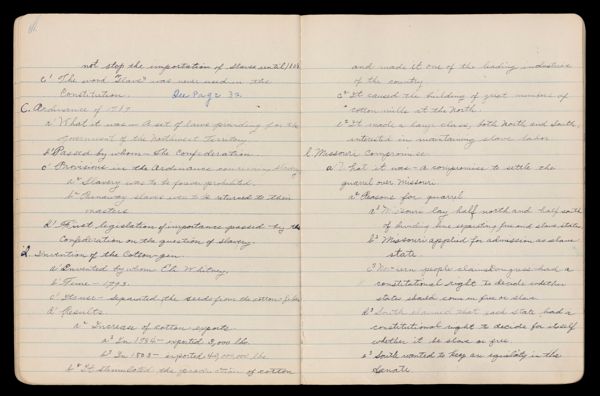 not stop the importation of slaves until 1808
c' The word "Slave" was never used in the
Constitution. See Page 32
C. Ordinance of 1787
a' What it was – A set of laws providing for the
government of the Northwest Territory.
b' Passed by whom – The Confederation.
c' Provisions in the Ordinance concerning slavery
a" Slavery was to be forever prohibited.
b" Runaway slaves were to be returned to their
masters
d' First legislation of importance passed by the
Confederation on the question of slavery.
d. Invention of the Cotton-gin.
a' Invented by whom Eli Whitney.
b' Time – 1793.
c' It use – separated the seeds from the cotton fiber
d' Results.
a" Increase of cotton exports
a''' In 1784 – exported 3,000 lbs.
b''' In 1803 – exported 40,000,000 lbs
b" It stimulated the production of cotton
and made it one of the leading industries
of the country.
c" It caused the building of great numbers of
cotton mills at the North.
d" It made a large class, both North and South,
interested in maintaining slave labor.
E. Missouri Compromise
a' What it was – a compromise to settle the
quarrel over Missouri.
a" Reasons for quarrel
a''' Missouri lay half north and half south
of dividing line separating free and slave states
b''' Missouri applied for admission as slave
state
c''' Northern people claim Congress had a
constitutional right to decide whether
states should come in free or slave
d''' South claimed that each state had a
constitutional right to decide for itself
whether it be slave or free.
e''' South wanted to keep an equality in the
Senate.